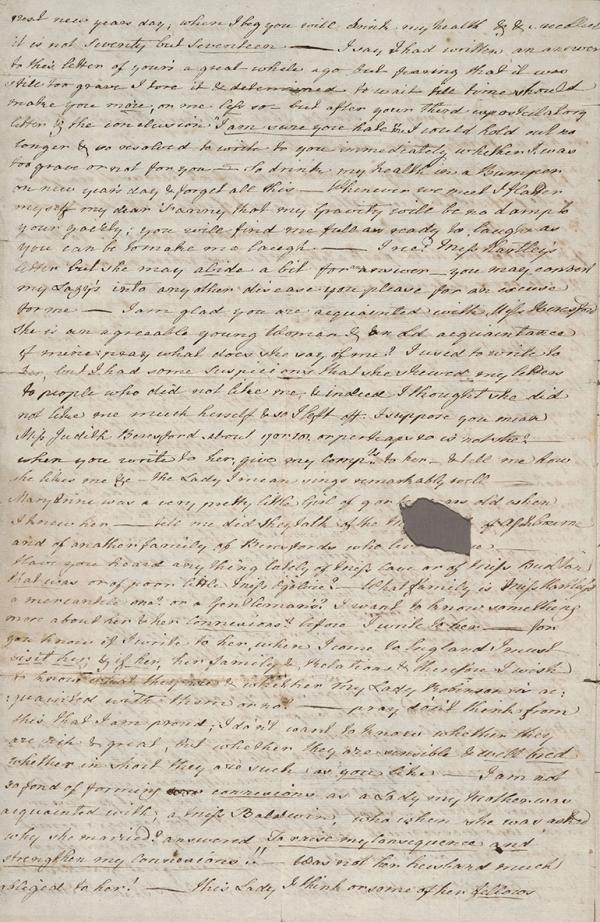 next new years day; when I beg you will drink my health & & recollect
it is not Seventy but Seventeen — I say I had written an answer
to this letter of yours a great while ago but fearing that it was
still too grave I tore it & determined to wait till time should
make you more, or me less so — but after your third expostulatory
letter & the conclusion "I am sure you hate me" I could hold out no
longer & so resolved to write to you immediately, whether I was
too grave or not for you — So drink my health in a Bumper
on new year's day & forget all this — Whenever we meet I flatter
myself my dear Fanny, that my Gravity will be no damp to
your gaiety; you will find me full as ready to laugh as
you can be to make me laugh. — I recd. Miss Hartley's
letter but she may abide a bit for an answer — you may convert
my Lazy's into any other disease you please for an excuse
for me — I am glad you are acquainted with Miss Beresford
She is an agreable young Woman & an old acquaintance
of mine: pray what does she say of me? I used to write to
her, but I had some suspicions that she shewed my letters
to people who did not like me, & indeed I thought she did
not like me much herself & so I left off. I suppose you mean
Miss Judith Beresford about or perhaps 20 is not she? —
when you write to her, give my Compts. to her — & tell me how
she likes me &c — the Lady I mean sings remarkably well —
was a very pretty little Girl of 9 or old when
I knew her — tell me did they talk of the of Ashbourne
and of another family of Beresfords who
Have you heard any thing lately of Miss Cave or of Miss
that was or of poor little Miss — What family is Miss Hartley's
a mercantile one? or a Gentleman's? I want to know something
more about her & her Connexions before I write to her — for
you know if I write to her, when I come to England I must
visit her; & if her, her family & Relations & therefore I wish
to know what they are & whether my Lady Robinson is ac:
:quainted with them or no? — pray don't think from
this that I am proud; I don't want to know whether they
are rich & great, but whether they are sensible & well bred
whether in short they are such as you like — I am not
so fond of forming connexions as a Lady my Mother was
acquainted with; a Miss Baldwin, who when she was asked
why she married? answered To raise my Consequence and
strengthen my Connexions!! — Was not her husband much
obliged to her! — this Lady I think or some of her fellows